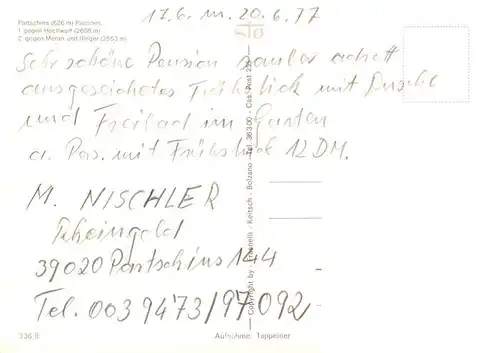 17.6. m. 20.6.77
Partschins (626 m)
1 gegen Hochwart (2608 m)
2 gegen Meran und Ifinger (2553 m)
Sehr schöne Pension sauber
ausgezeichetes Frühstück mit Dusche
und Freibad im Garten
a. Pas. mit Frühstück 12 DM.
M. NISCHLER
Rheingold
39020 Partschins 144
Tel. 0039473/97092
336 B
Aufnahme: Tappeiner
Copyright by - Keitsch - Bolzano - Tel. 36300 - Cas. Post